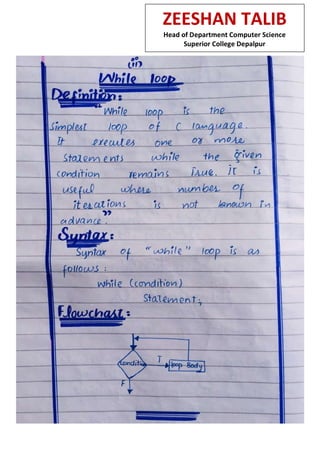 ZEESHAN TALIB
Head of Department Computer Science
Superior College Depalpur
(ii)
While loop
Definition:
While loop is the
simplest loop of C language.
It executes one or more
Statements while the given
condition remains True. It is
useful where number of
iterations is not known in
advance.”
Syntax:
Syntax of “while” loop is as
follows:
while (condition)
Statement;
Flowchart:
conditio
T
loop Body
F